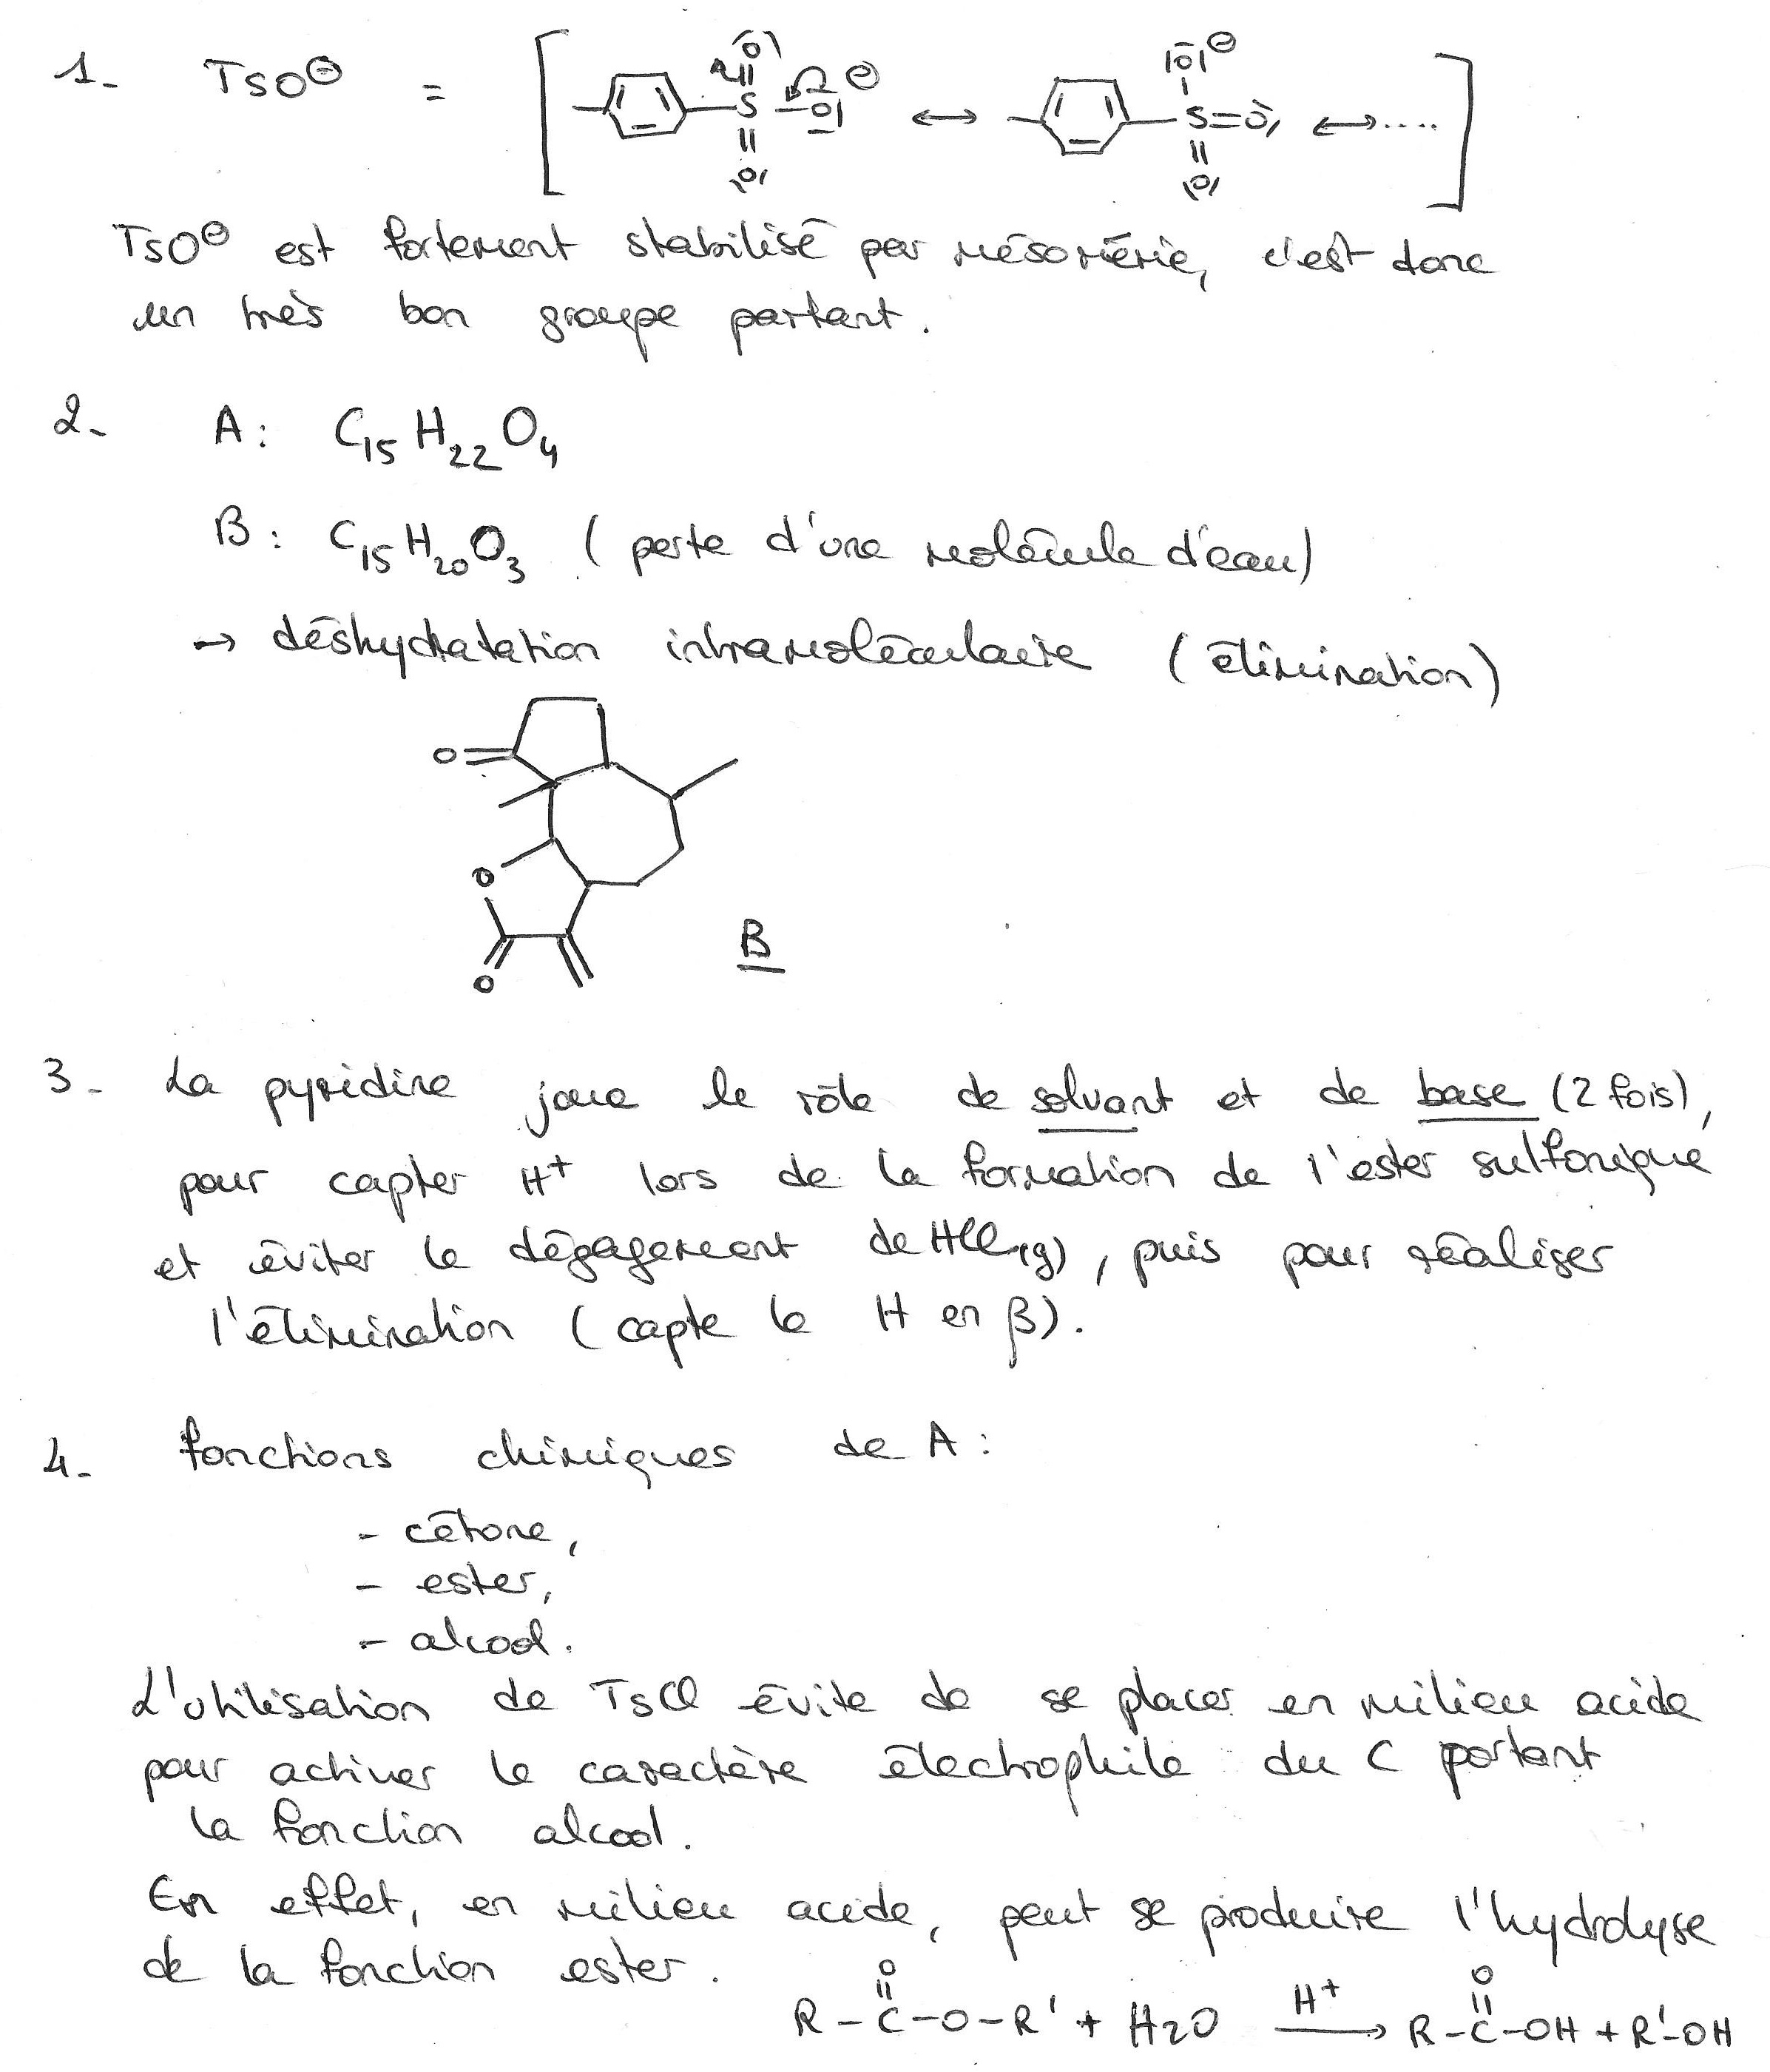 1- TsO⊖ = [ |O| S O| ⊖ |O| ↔ |O|⊖ S=O| |O| ↔ ..... ]
TsO⊖ est fortement stabilisé par mésomérie, c'est donc
un très bon groupe partant.
2- A : C15H22O4
B : C15H20O3 ( perte d'une molécule d'eau)
→ déshydratation intramoléculaire ( élimination)
O
O
O
B
3- La pyridine joue le rôle de solvant et de base (2 fois),
pour capter H+ lors de la formation de l'ester sulfonique
et éviter le dégagement de HCl(g), puis pour réaliser
l'élimination ( capte le H en β).
4- fonctions chimiques de A :
- cétone,
- ester,
- alcool.
L'utilisation de TsCl évite de se placer en milieu acide
pour activer le caractère électrophile du C portant
la fonction alcool.
En effet, en milieu acide, peut se produire l'hydrolyse
de la fonction ester.
O O
R-C-O-R' + H2O H+ → R-C-OH + R'-OH